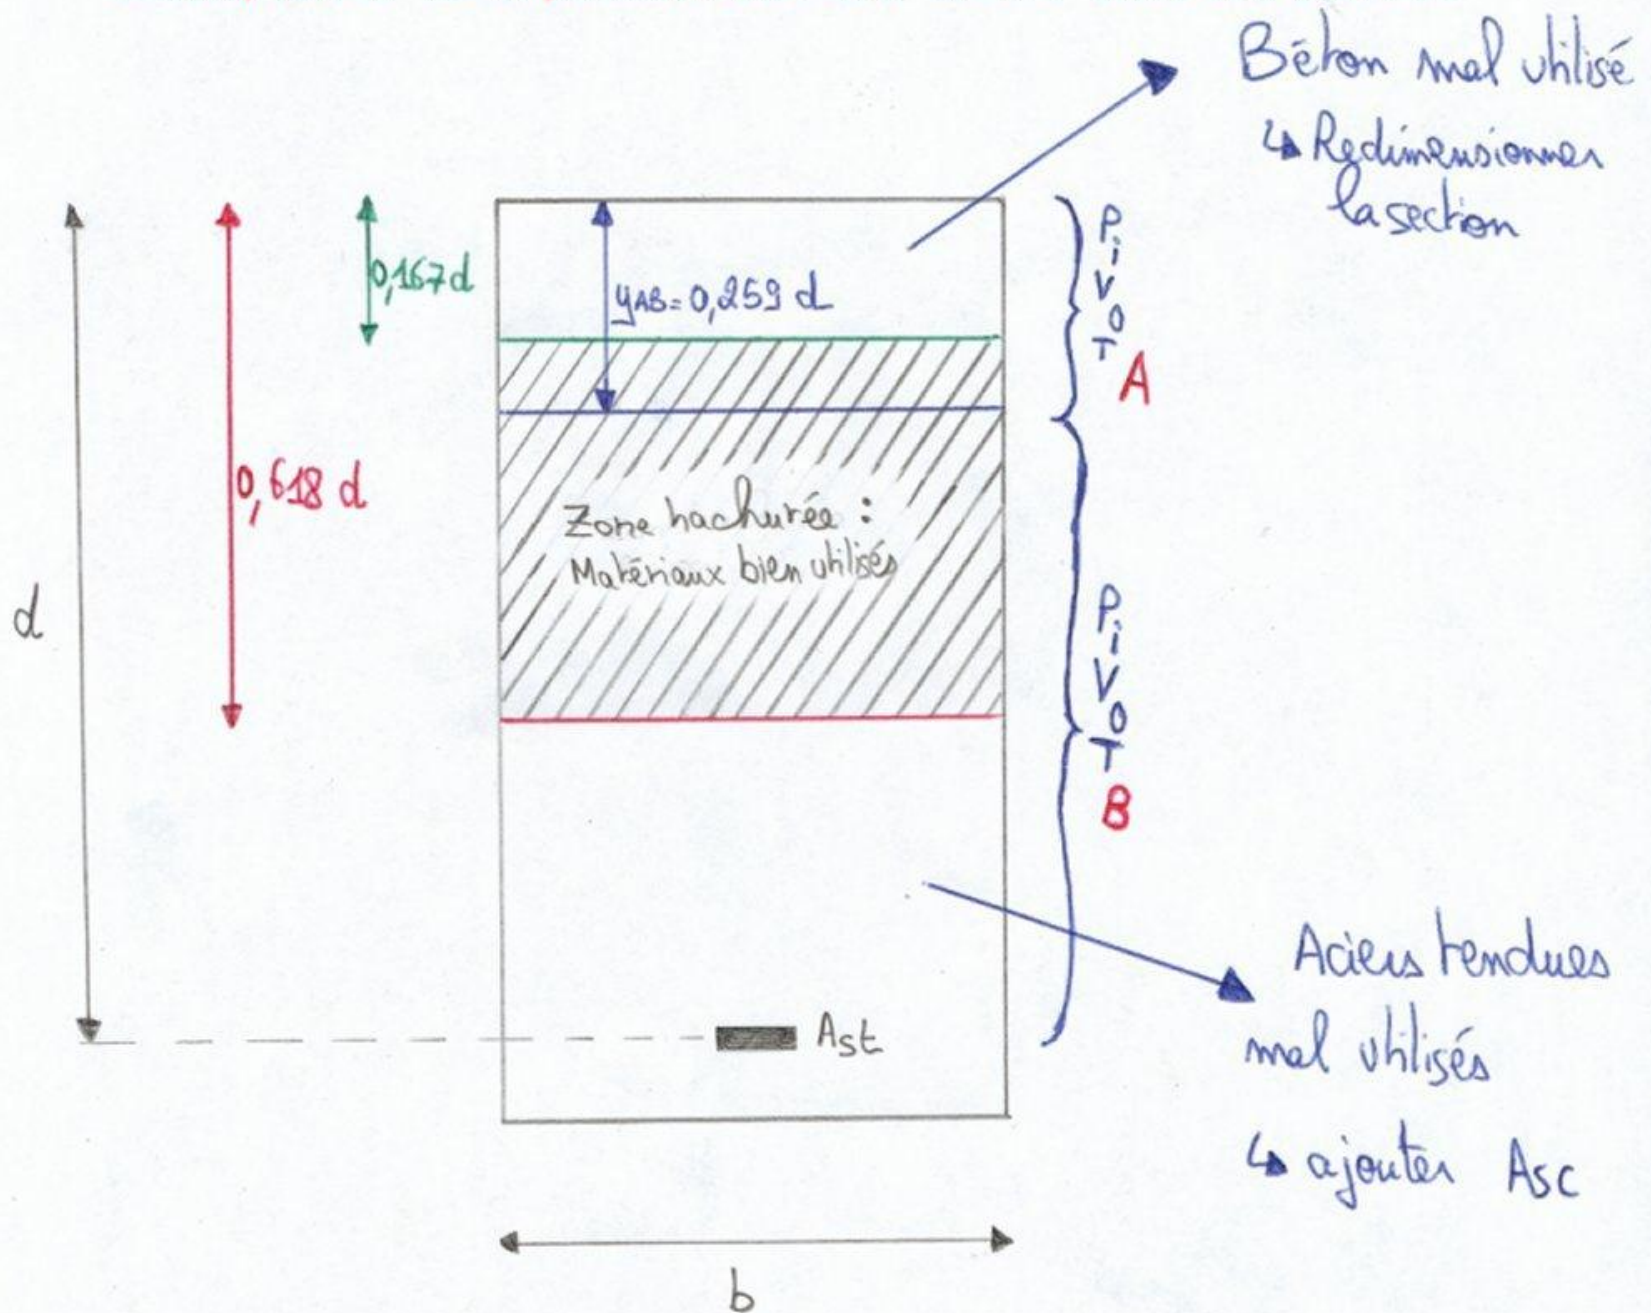 Béton mal utilisé
↳ Redimensionner
la section
0,167 d
yAB = 0,259 d
PiVOT
A
0,618 d
Zone hachurée :
Matériaux bien utilisés
d
PiVOT
B
Aciers tendues
mal utilisés
↳ ajouter Asc
Ast
b